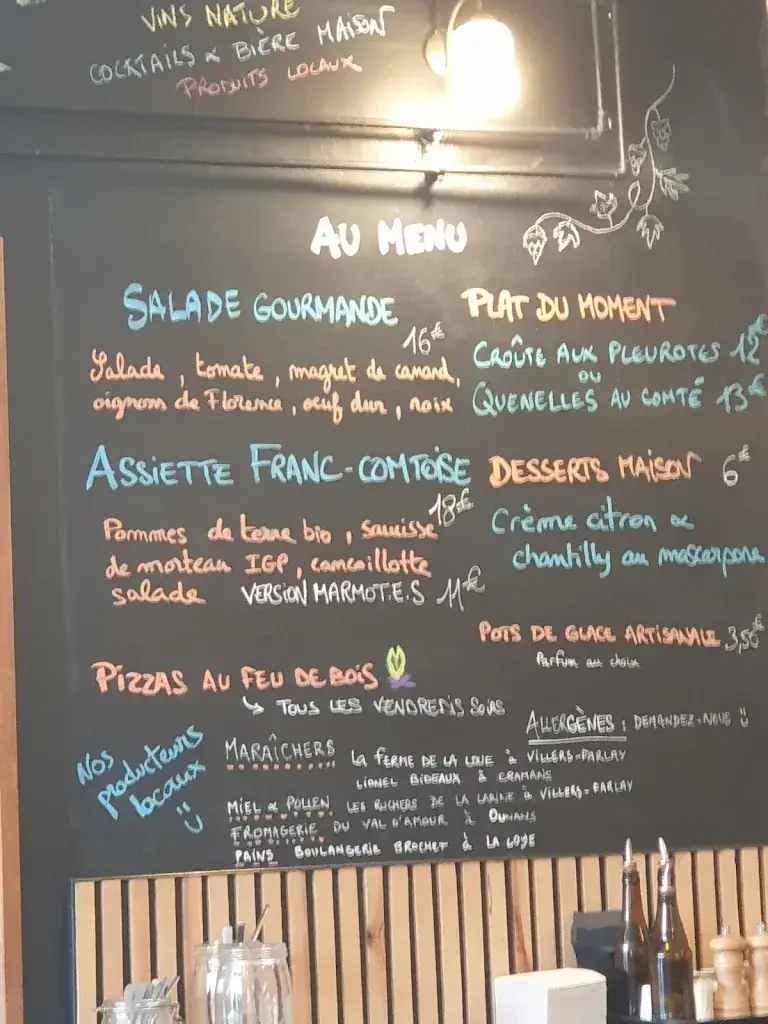 VINS NATURE
COCKTAILS & BIÈRE MAISON
PRODUITS LOCAUX
AU MENU
SALADE GOURMANDE
16€
Salade, tomate, magret de canard,
oignons de Florence, oeuf dur, noix
ASSIETTE FRANC-COMTOISE
18€
Pommes de terre bio, saucisse
de morteau IGP, cancoillotte
salade VERSION MARMOT.E.S 11€
PIZZAS AU FEU DE BOIS
↳ TOUS LES VENDREDIS SOIRS
PLAT DU MOMENT
CROÛTE AUX PLEUROTES 12€
OU
QUENELLES AU COMTÉ 13€
DESSERTS MAISON 6€
Crème citron &
chantilly au mascarpone
POTS DE GLACE ARTISANALE 3,50€
Parfum au choix
ALLERGÈNES : DEMANDEZ-NOUS
Nos
producteurs
locaux
MARAÎCHERS LA FERME DE LA LOUE à VILLERS-FARLAY
LIONEL BIDEAUX à CRAMANS
MIEL & POLLEN LES RUCHERS DE LA LARINE à VILLERS-FARLAY
FROMAGERIE DU VAL D'AMOUR à OUNANS
PAINS BOULANGERIE BROCHET à LA LOYE